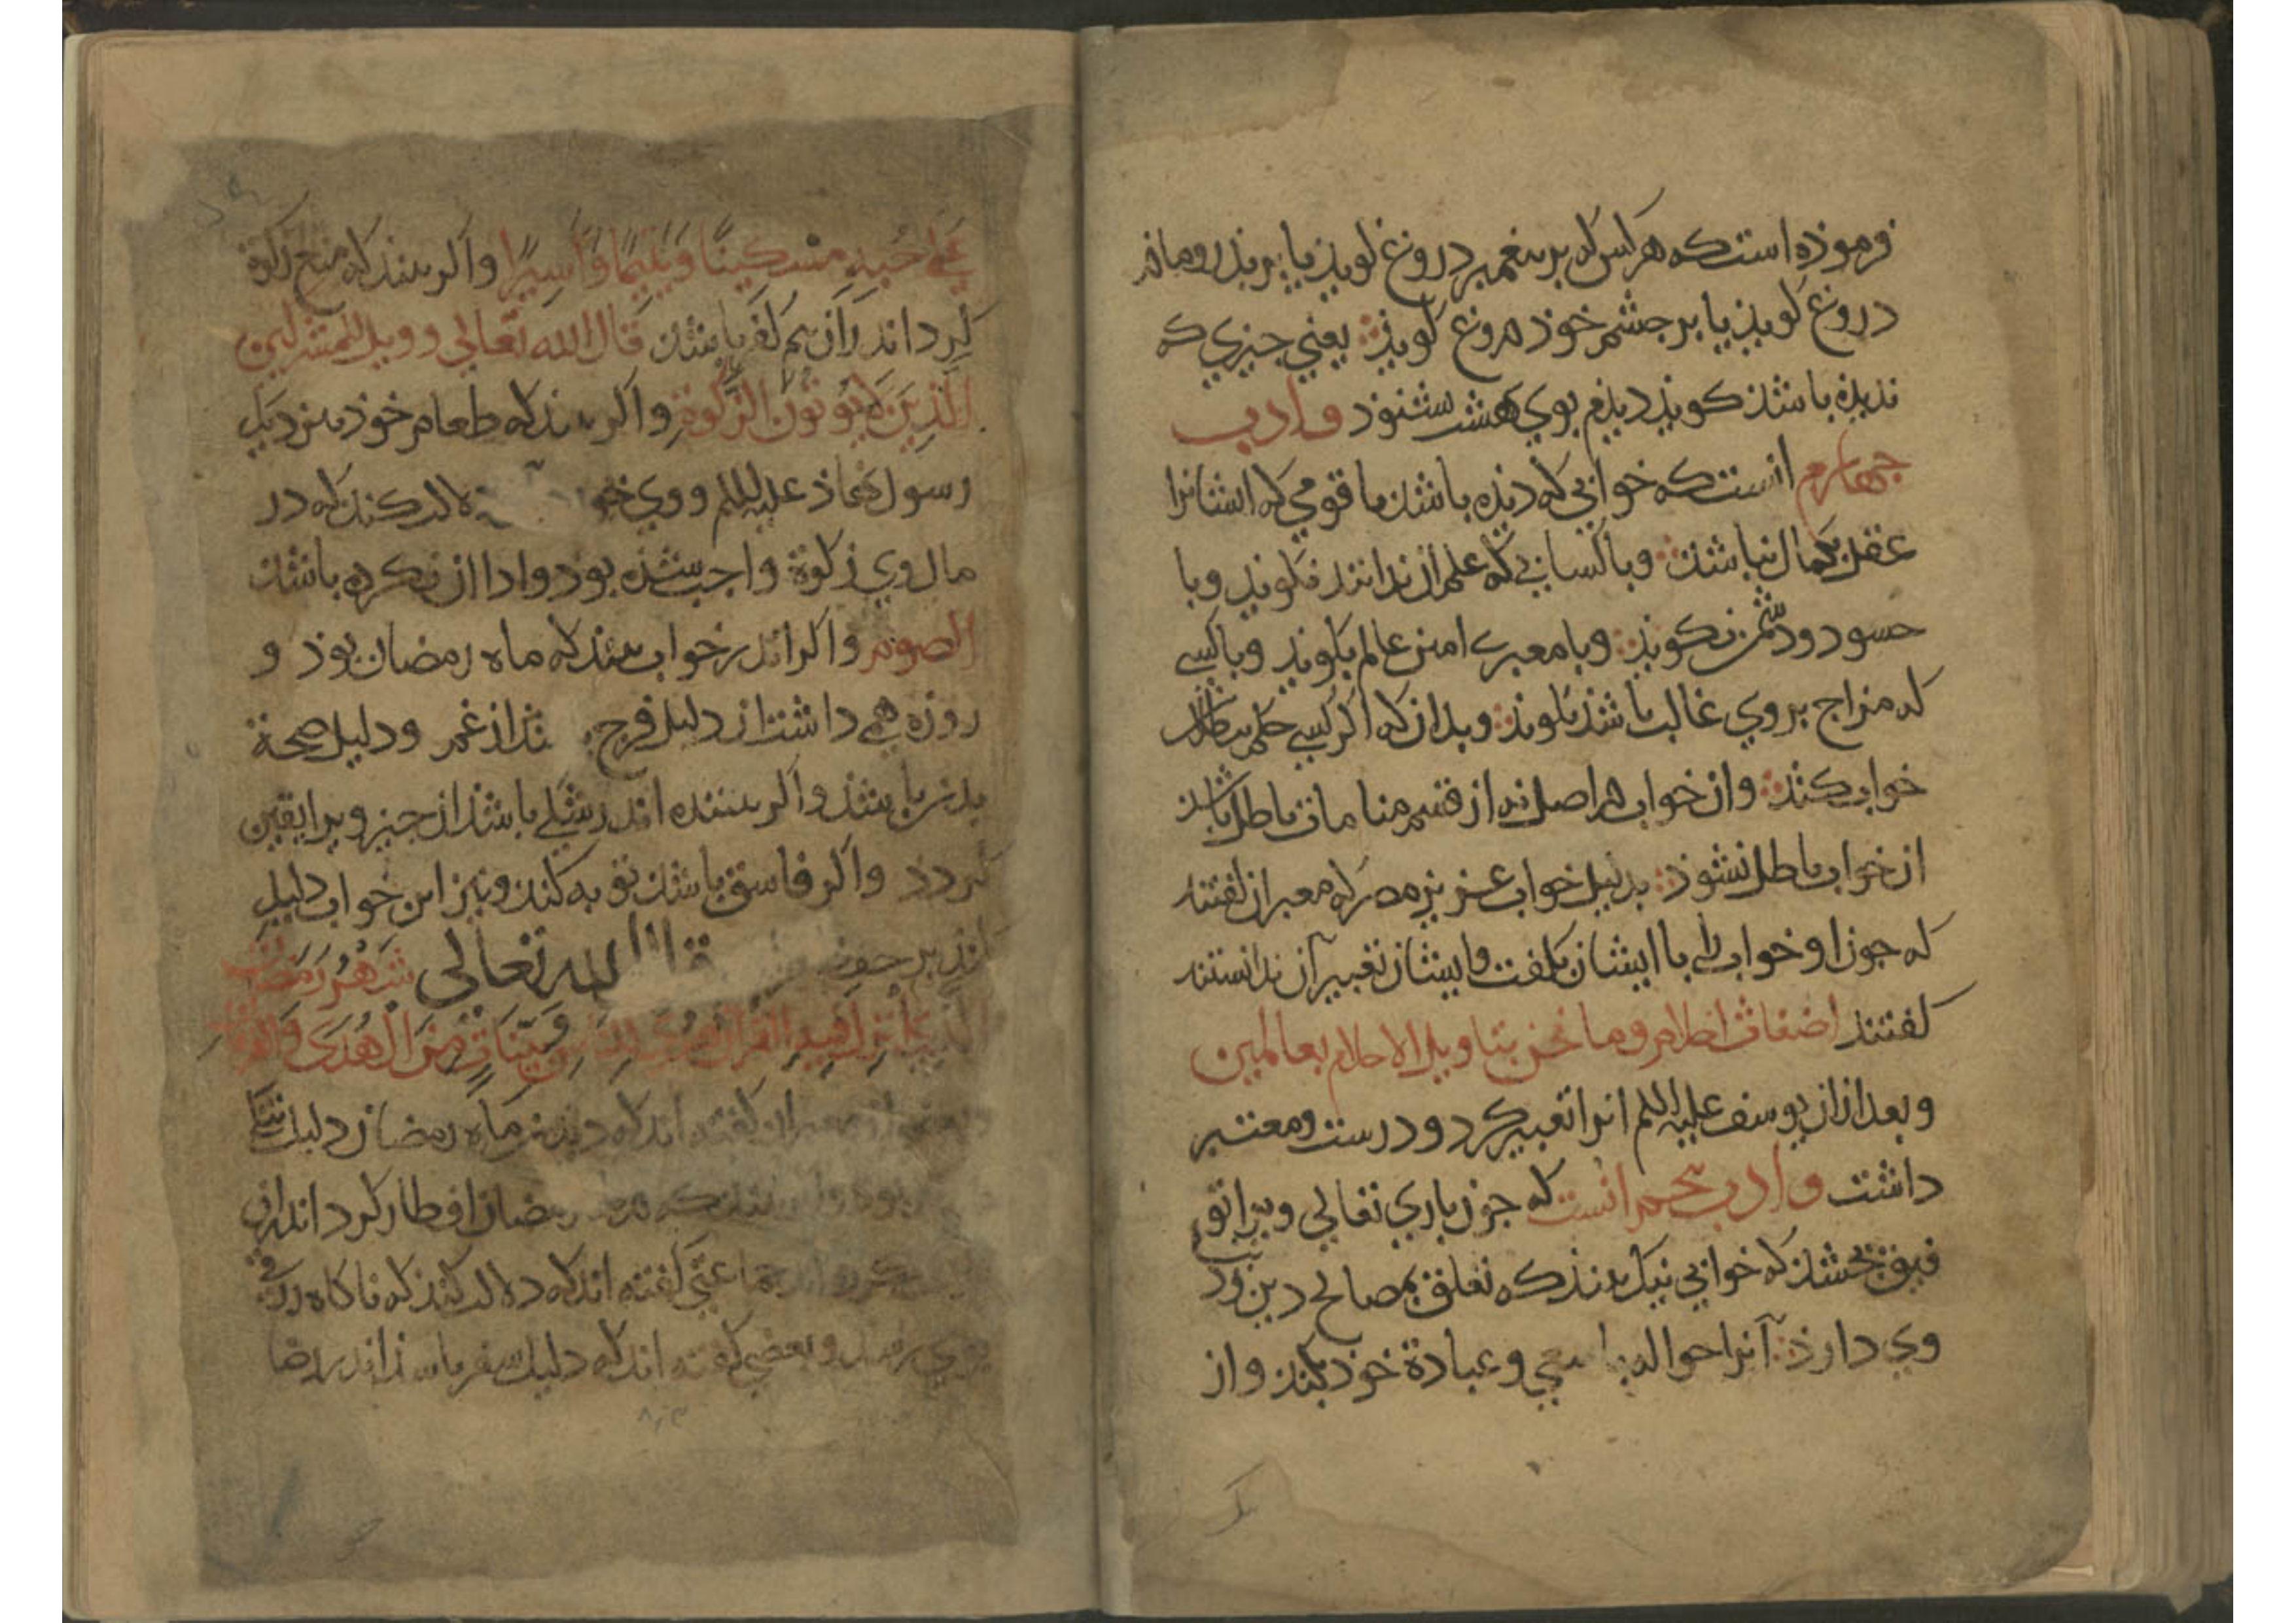 فرموذه است که هر کس که بر بیغمبر دروغ کویذ یا بر بذر و ماذر
دروغ کویذ یا بر جشم خوذ دروغ کویذ یعنی جیزی که
ندیذه باشذ کویذ دیذم بوی بهشت نشنوذ و ادب
جهارم انست که خوابی که دیذه باشذ با قومی که ایشانرا
عقل بکمال نباشذ و با کسانی که علم آن ندانند نکویذ و با
حسود و دشمن نکویذ و با معبری امین عالم بکویذ و با کسی
که مزاج بروی غالب باشذ نکویذ و بدان که اکر کسی حکم
خواب کنذ و ان خواب را اصل نه از قسم منامات باطل باشذ
ان خواب باطل نشوذ بدلیل خواب عزیز مصر که معبران کفتند
که جون او خواب را با ایشان بکفت و ایشان تعبیر آن ندانستند
کفتند اضغاث احلام وما نحن بتاویل الاحلام بعالمین
و بعد از ان یوسف علیه السلم انرا تعبیر کرد و درست و معتبر
داشت و ادب بنجم انست که جون باری تعالی ویرا تو
فیق بخشذ که خوابی نیک بیند که تعلق بمصالح دین و
وی دارذ آنرا حواله با سعی و عبادة خوذ نکند و از
علی حبه مسکینا ویتیما واسیرا و اکر بیند که منع زکوة
کرد اندر آن بیم کفر باشذ قال الله تعالی وویل للمشرکین
الذین لا یؤتون الزکوة و اکر بیند که طعام خوذ
رسول علیه السلم و وی دلالت کند که در
مال وی زکوة واجب شذه بوذ و ادا ان نکرده باشذ
الصوم و اکر اندر خواب بیند که ماه رمضان بوذ و
روزه همی داشت ان دلیل فرج از غم و دلیل صحة
بدن باشذ و اکر بیننده اندر شکی باشذ از جیز ویرا یقین
کردد و اکر فاسق باشذ توبه کند و نیز این خواب دلیل
کند بر قال الله تعالی شهر رمضان
الذی انزل فیه القران هدی للناس وبینات من الهدی والفرقان
معبران کفته اند که دیدن ماه رمضان دلیل
بوذ رمضان افطار کرد اندران
جماعتی کفته اند که دلالت کند که ناکاه
و بعضی کفته اند که دلیل سفر باشذ اندر رضا